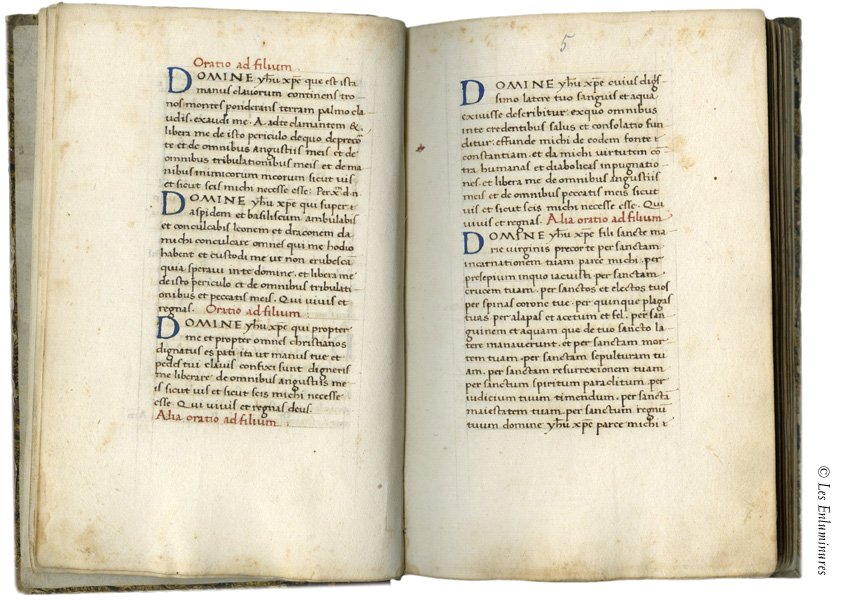 Oratio ad filium
DOMINE yħu xp̄e que est ista
manus clavorum continens tro
nos montes ponderans terram palmo cla
udis. exaudi me. A. ad te clamantem &
libera me de isto periculo de quo deprecor
te et de omnibus angustiis meis et de
omnibus tribulationibus meis et de ma
nibus inimicorum meorum sicut vis
et sicut scis michi necesse esse. Per xp̄m d. n.
DOMINE yħu xp̄e qui super
aspidem et basiliscum ambulabis
et conculcabis leonem et draconem da
michi conculcare omnes qui me hodio
habent et custodi me ut non erubesca
quia speravi in te domine. et libera me
de isto periculo et de omnibus tribulati
onibus et peccatis meis. Qui vivis et
regnas. Oratio ad filium.
DOMINE yħu xp̄e qui propter
me et propter omnes christianos
dignatus es pati ita ut manus tue et
pedes tui clavis confixi sunt digneris
me liberare de omnibus angustiis me
is sicut vis et sicut scis michi necesse
esse. Qui vivis et regnas deus.
Alia oratio ad filium.
5
DOMINE yħu xp̄e cuius digs
simo latere tuo sanguis et aqua
exivisse describitur. ex quo omnibus
in te credentibus salus et consolatio fun
ditur. effunde michi de eodem fonte
constantiam. et da michi virtutem co
tra humanas et diabolicas inpugnatio
nes. et libera me de omnibus angustiis
meis et de omnibus peccatis meis sicut
vis et sicut scis michi necesse esse. Qui
vivis et regnas. Alia oratio ad filium
DOMINE yħu xp̄e fili sancte ma
rie virginis precor te per sanctam
incarnationem tuam parce michi. per
presepium in quo iacuisti. per sanctam
crucem tuam. per sanctos et electos tuos
per spinas corone tue. per quinque plagas
tuas. per alapas et acetum et fel. per san
guinem et aquam que de tuo sancto la
tere manaverunt. et per sanctam mor
tem tuam. per sanctam sepulturam tu
am. per sanctam resurrexionem tuam.
per sanctum spiritum paraclitum. per
iudicium tuum timendum. per sancta
maiestatem tuam. per sanctum regnū
tuum domine yħu xp̄e parce michi
© Les Enluminures